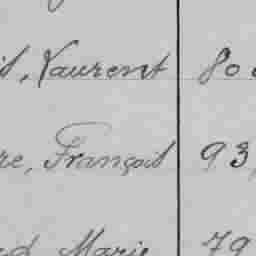 Laurent 80
re, François 93,
Marie 79